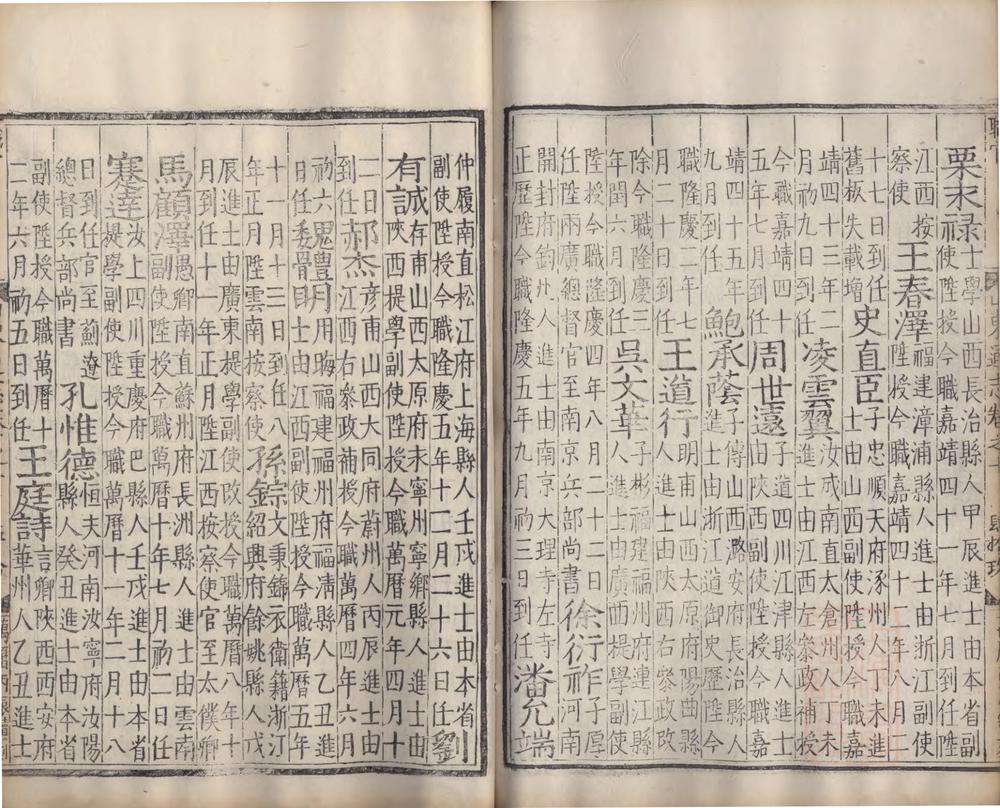 栗永禄士學山西長治縣人甲辰進士由本省副使陞授今職嘉靖四十一年七月到任陞
江西按察使王春澤福建漳浦縣人進士由浙江副使陞授今職嘉靖四十年八月二
十七日到任舊板失載增史直臣子忠順天府涿州人丁未進士由山西副使陞授今職嘉
靖四十三年月初九日到任凌雲翼汝成南直太倉州人丁未進士由江西左叅政補授
今職嘉靖四十五年七月周世遠子道四川江津縣人進士由陝西副使陞授今職嘉
靖四十五年九月到任鮑承蔭子傳山西潞安府長治縣人進士由浙江道御史歷陞今
職隆慶二年七月二十日到任王道行明甫山西太原府陽曲縣人進士由陝西右叅政改
除今職隆慶三年閏六月到任吳文華子彬福建福州府連江縣人進士由廣西提學副使
陞授今職隆慶四年八月二十二日到任陞兩廣總督官至南京兵部尚書徐衍祚子厚河南
開封府鈞州人進士由南京大理寺左寺正歷陞今職隆慶五年九月初三日到任潘允端
仲履南直松江府上海縣人壬戌進士由本省副使陞授今職隆慶五年十二月二十六日任劉
有誠存甫山西太原府寧鄉縣人進士由陝西提學副使陞授今職萬曆元年四月十
二日到任郝杰彥甫山西大同府蔚州人丙辰進士由江西右叅政補授今職萬曆四年六月
初六日任魏體明用晦福建福州府福淸縣人乙丑進士由江西副使陞授今職萬曆五年
十一月十三日到任八年正月陞雲南按察使孫錝文秉錦衣衛籍浙江紹興府餘姚縣人戊
辰進士由廣東提學副使改授今職萬曆八年十月到任十一年正月陞江西按察使官至太僕卿
馬顧澤愚卿南直蘇州府長洲縣人進士由雲南副使陞授今職萬曆十年七月初二日任
蹇達汝上四川重慶府巴縣人壬戌進士由本省提學副使陞授今職萬曆十一年二月十八
日到任官至薊遼總督兵部尚書孔惟德恒夫河南汝寧府汝陽縣人癸丑進士由本省
副使陞授今職萬曆十二年六月初五日到任王庭詩言卿陝西西安府華州人乙丑進士